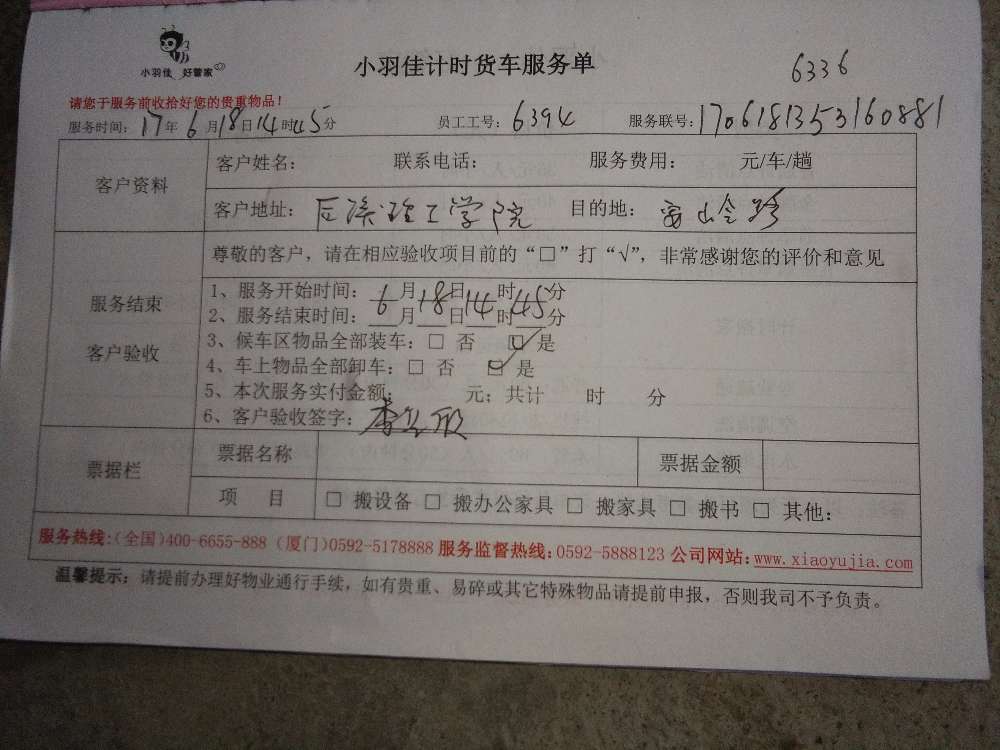 小羽佳 好管家
小羽佳计时货车服务单
6336
请您于服务前收拾好您的贵重物品！
服务时间：17年6月18日14时45分 员工工号：6394 服务联号：1706181353160881
客户资料
客户姓名： 联系电话： 服务费用： 元/车/趟
客户地址：后溪理工学院 目的地：
服务结束
客户验收
尊敬的客户，请在相应验收项目前的“□”打“√”，非常感谢您的评价和意见
1、服务开始时间：6月18日14时45分
2、服务结束时间：__月__日__时__分
3、候车区物品全部装车：□ 否 ☑ 是
4、车上物品全部卸车：□ 否 ☑ 是
5、本次服务实付金额： 元；共计 时 分
6、客户验收签字：
票据栏
票据名称 票据金额
项 目 □ 搬设备 □ 搬办公家具 □ 搬家具 □ 搬书 □ 其他：
服务热线：（全国）400-6655-888（厦门）0592-5178888 服务监督热线：0592-5888123 公司网站：www.xiaoyujia.com
温馨提示：请提前办理好物业通行手续，如有贵重、易碎或其它特殊物品请提前申报，否则我司不予负责。